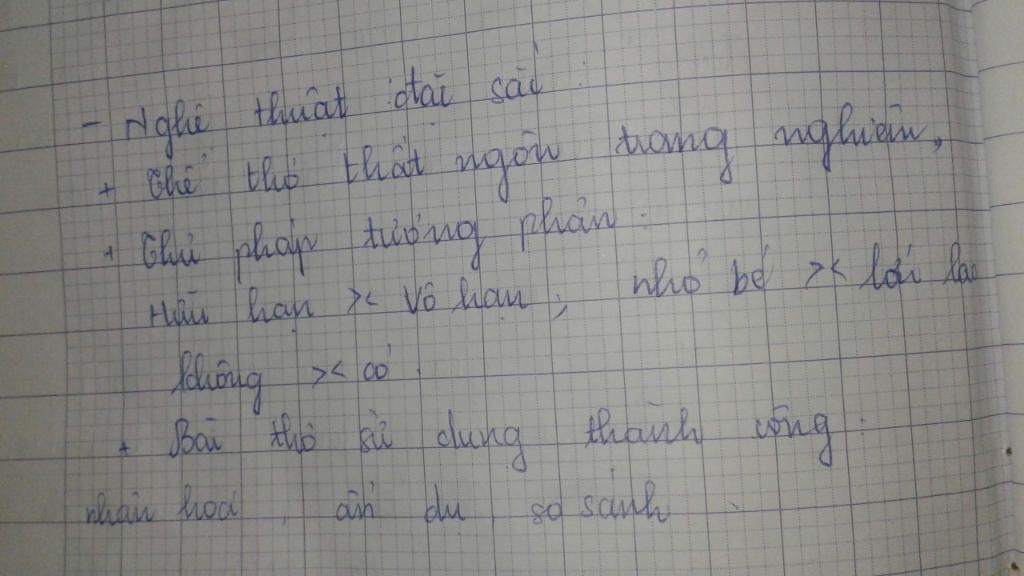 - Nghệ thuật đặc sắc:
+ Thể thơ thất ngôn trang nghiêm,
+ Thủ pháp tương phản:
Hữu hạn >< Vô hạn, nhỏ bé >< lớn lao
không >< có
+ Bài thơ sử dụng thành công:
nhân hoá, ẩn dụ, so sánh.